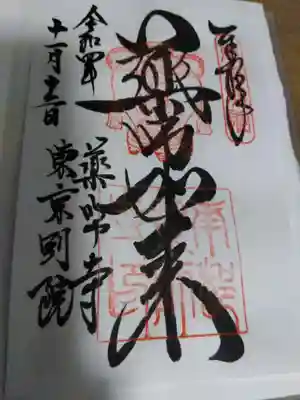 奉拝
薬師如来
薬師寺
東京別院
令和四年
十一月十三日